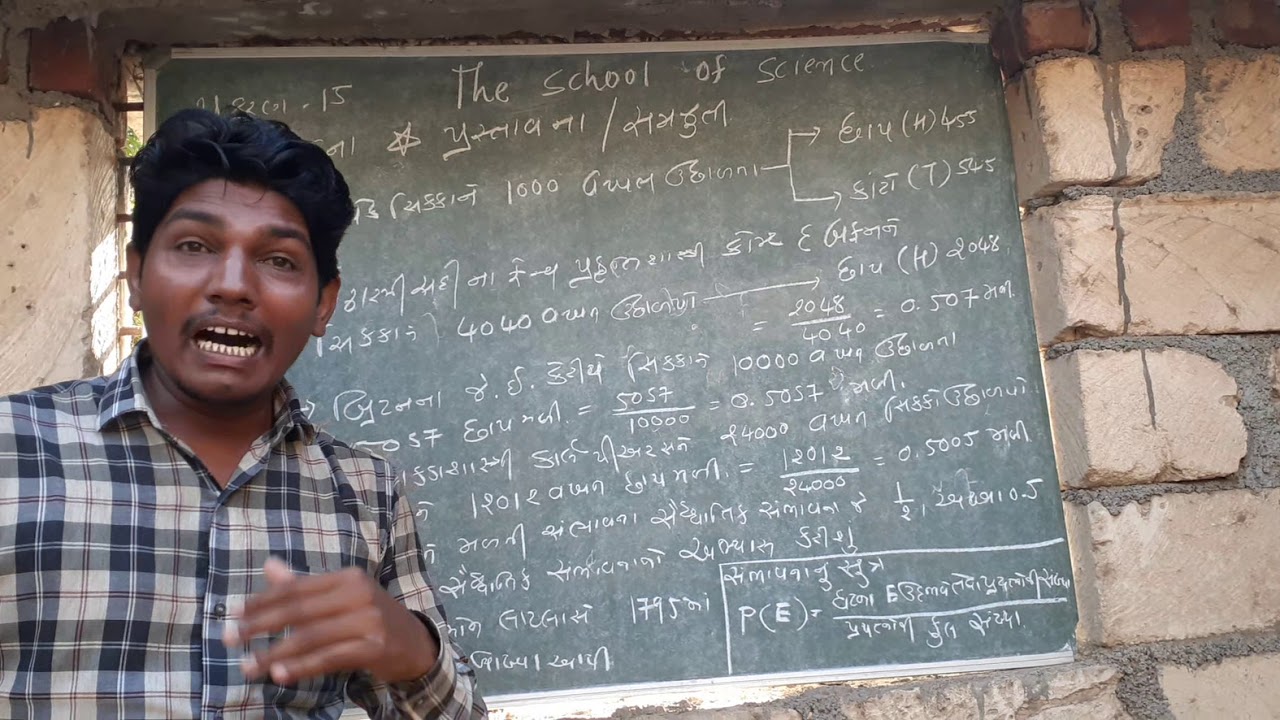 The School of Science
પ્રકરણ - 15
ના ☆ પ્રસ્તાવના / સમજુતી
સિક્કાને 1000 વખત ઉછાળતા → છાપ (H) 455
→ કાંટો (T) 545
સદીના ફ્રેન્ચ
સિક્કાને 4040 વખત ઉછાળ્યો → છાપ (H) ૨048
= ૨048/4040 = 0.507 મળી.
→ બ્રિટનના જે. ઈ. કેરીચે સિક્કાને 10000 વખત ઉછાળતા
5057 છાપ મળી. = 5057/10000 = 0.5057 મળી.
કાર્લ પીઅરસને ૨4000 વખત સિક્કો ઉછાળ્યો
ને 1૨01૨ વખત છાપ મળી. = 1૨01૨/૨4000 = 0.5005 મળી
મળતી સંભાવના સૈદ્ધાંતિક સંભાવના જે 1/૨, અથવા 0.5
સૈદ્ધાંતિક સંભાવનાનો અભ્યાસ કરીશું
લાપ્લાસે 1795માં
વ્યાખ્યા આપી
સંભાવનાનું સુત્ર
P(E) = ઘટના E ઉદ્દભવે તેવા પ્રયત્નોની સંખ્યા/પ્રયત્નોની કુલ સંખ્યા.